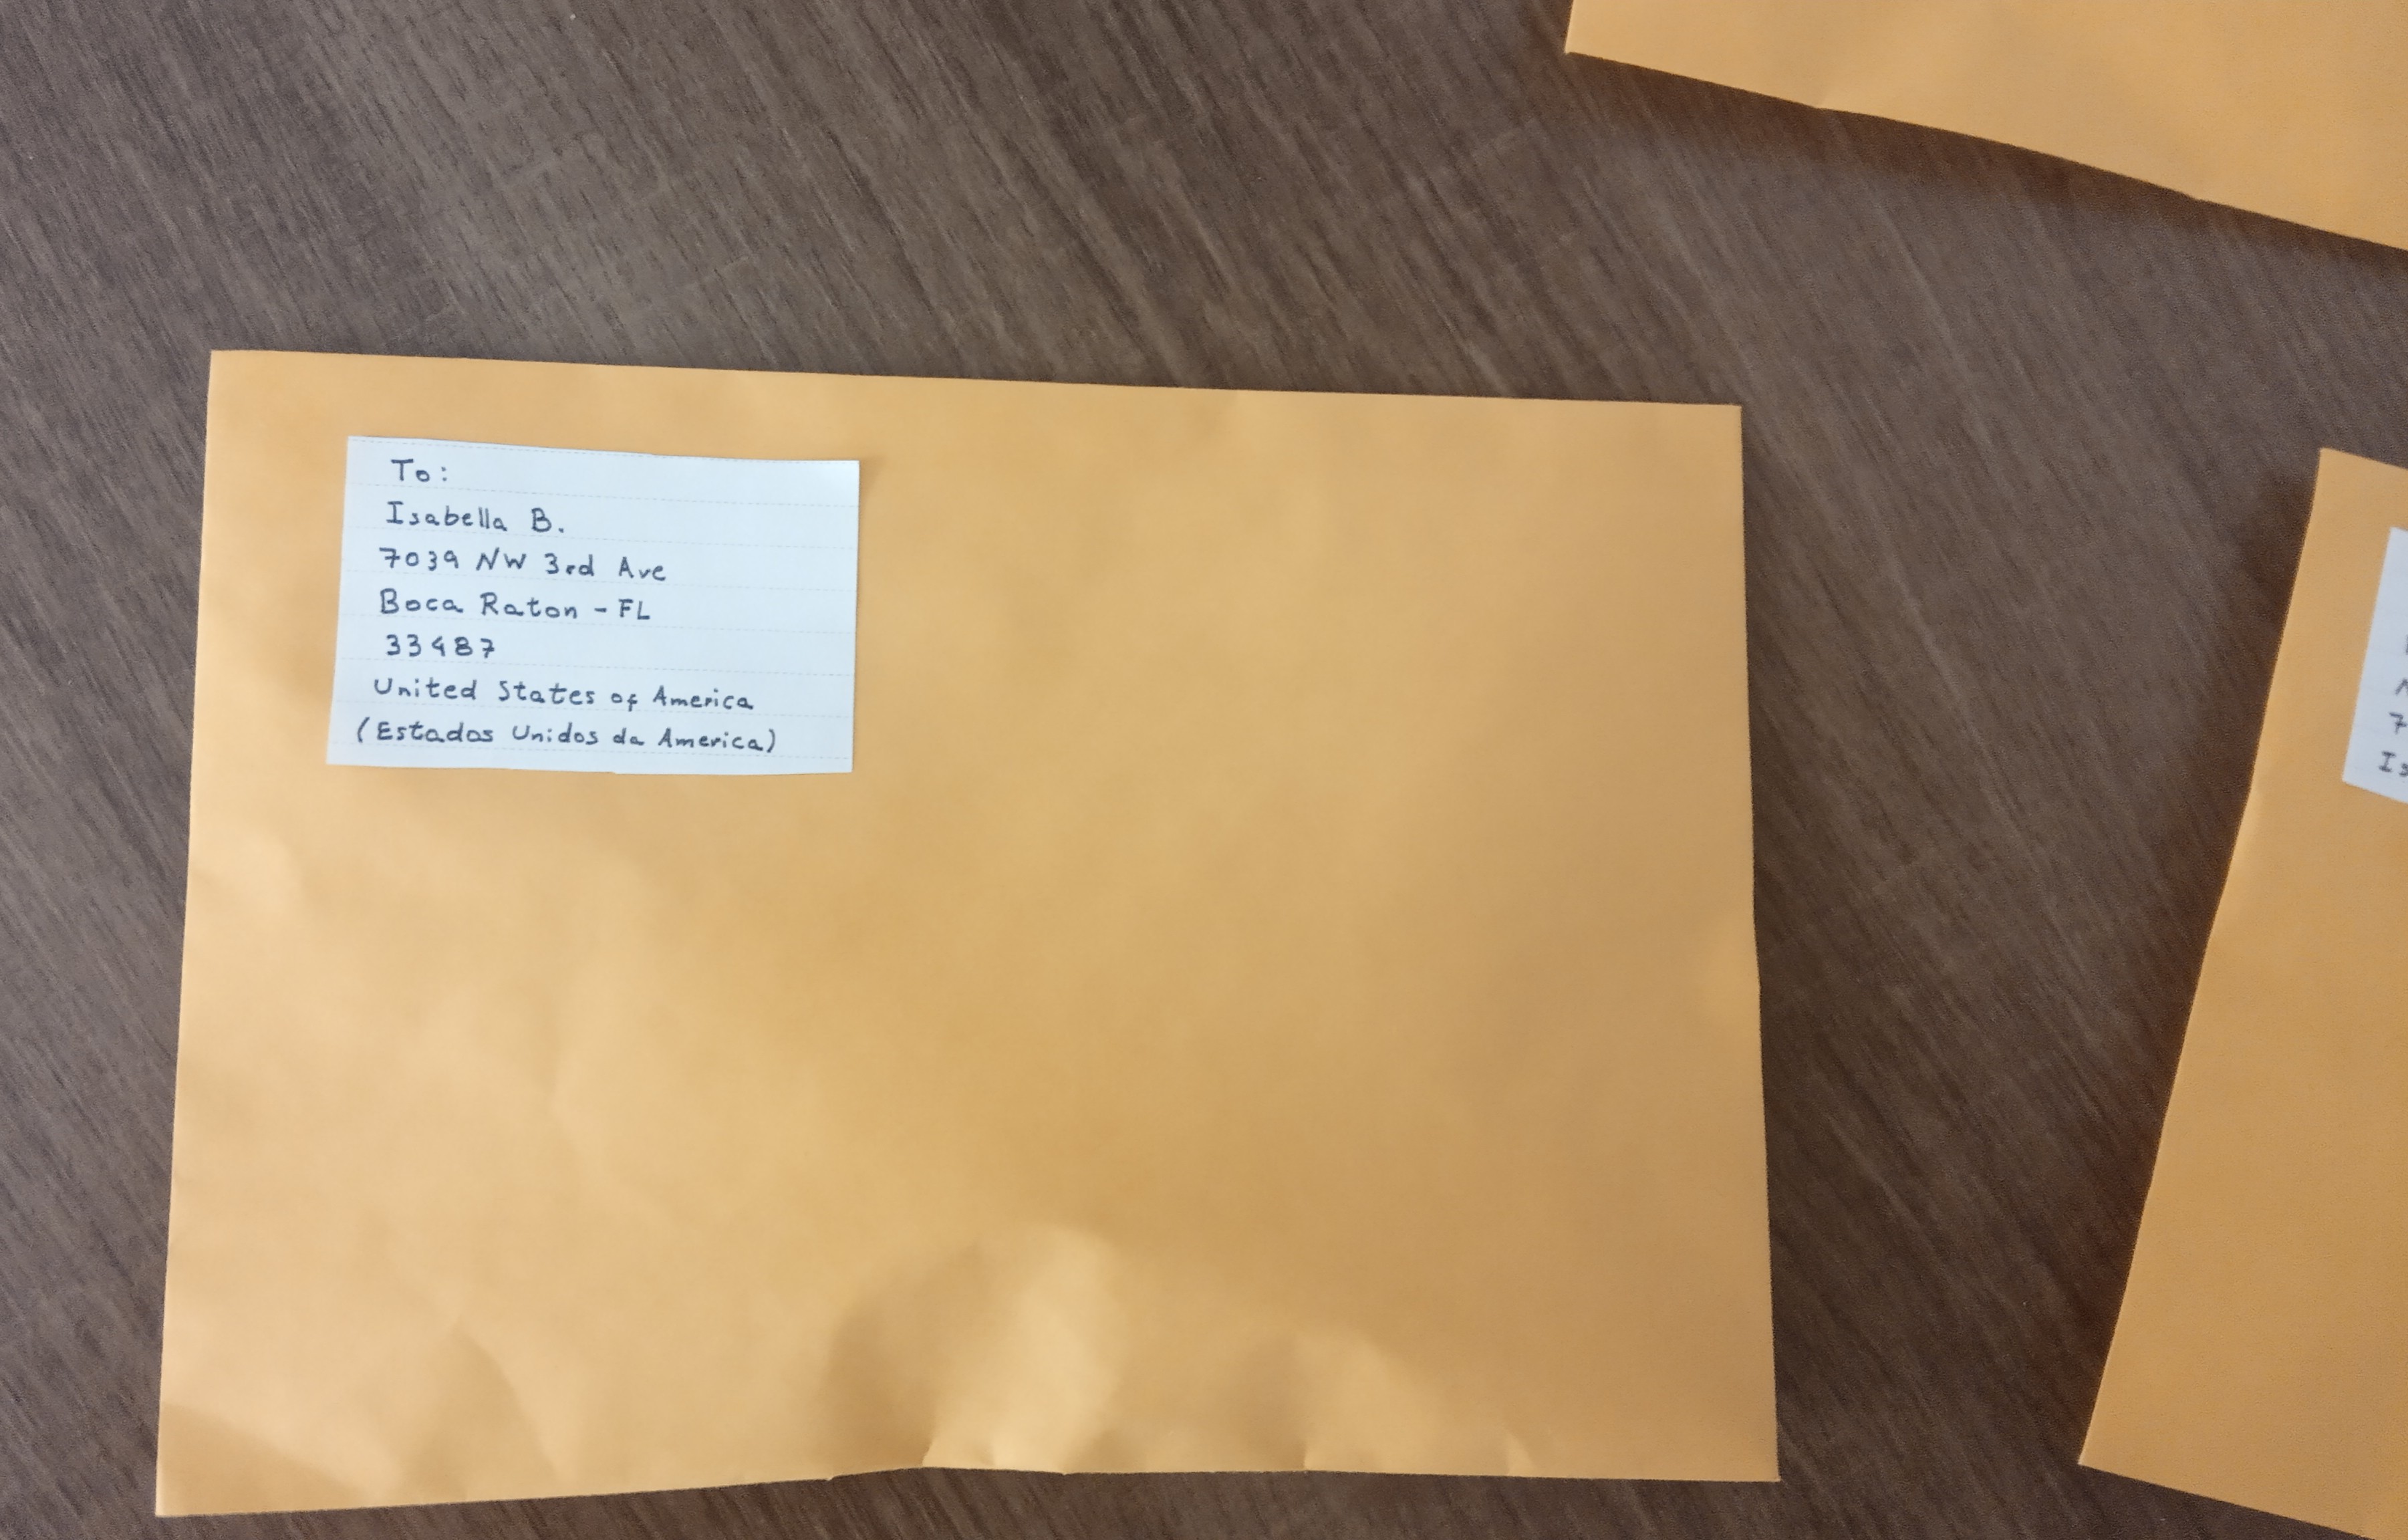 To:
Isabella B.
7039 NW 3rd Ave
Boca Raton - FL
33487
United States of America
(Estados Unidos da America)
7
Is